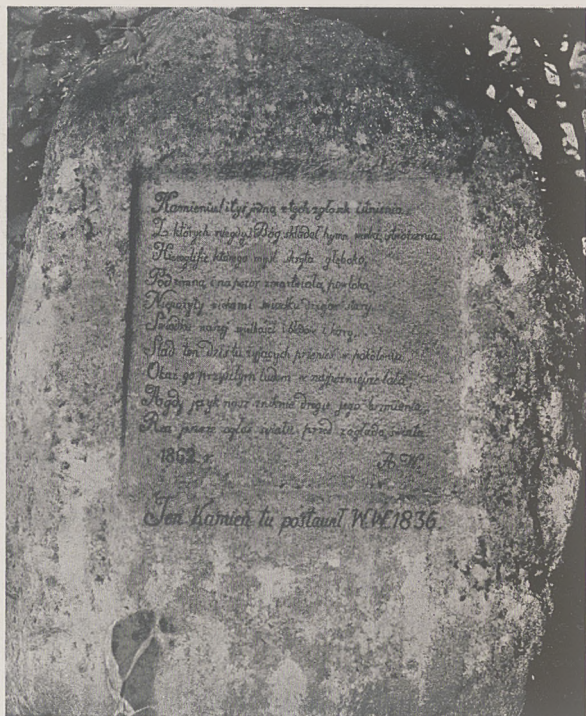 Kamieniu! i tyś jedną z tych zgłosek istnienia,
Z których niegdyś Bóg składał hymn stworzenia,
Hieroglifie którego myśl ukryta głęboko,
Pod zimną, i na pozór zmartwiałą powłoką,
Niepożyty wiekami świadku dziejów stary,
Świadku naszej wielkości i błędów i kary,
Ślad ten dziś tu żyjących przenieś w pokolenia,
Okaż go przyszłym ludom w najpóźniejsze lata,
A gdy język nasz drogie jego brzmienia,
Raz jeszcze ogłoś światu przed zagładą świata
1862 r. A. W.
Ten Kamień tu postawił W.W. 1836.